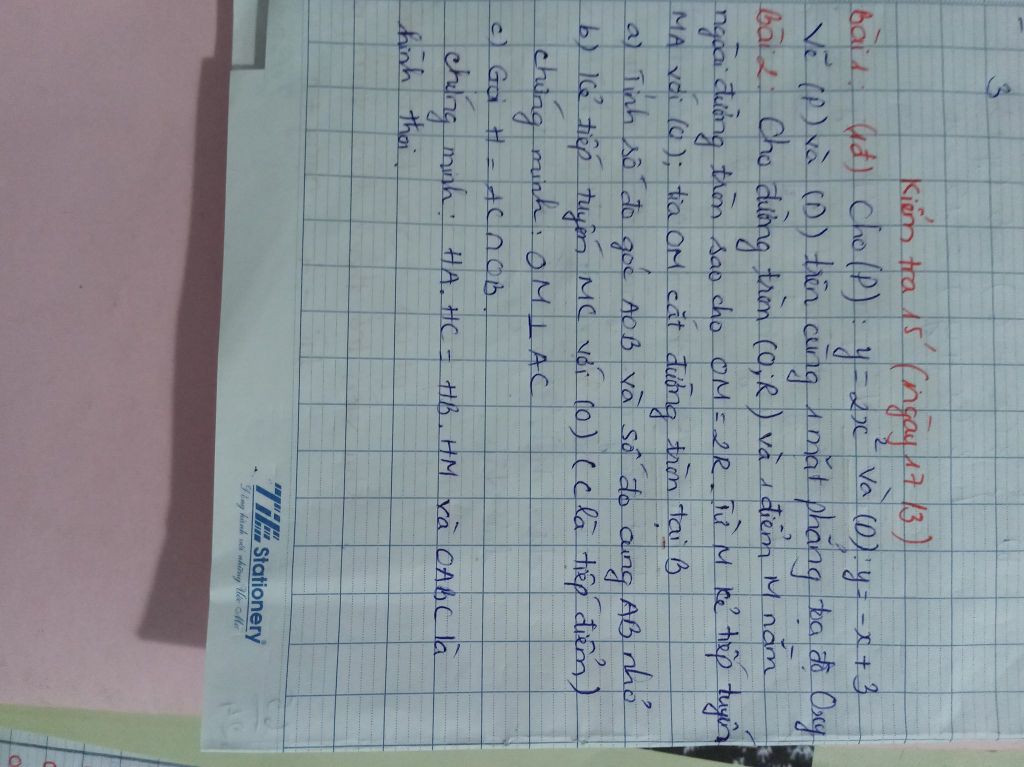 3
Kiểm tra 15' (ngày 17/3)
Bài 1: (1đ) Cho (P): y = 2x² và (D): y = -x + 3
Vẽ (P) và (D) trên cùng 1 mặt phẳng tọa độ Oxy
Bài 2: Cho đường tròn (O; R) và 1 điểm M nằm
ngoài đường tròn sao cho OM = 2R. Từ M kẻ tiếp tuyến
MA với (O); tia OM cắt đường tròn tại B
a) Tính số đo góc AOB và số đo cung AB nhỏ
b) Kẻ tiếp tuyến MC với (O) (C là tiếp điểm)
chứng minh: OM ⊥ AC
c) Gọi H = AC ∩ OB.
chứng minh: HA.HC = HB.HM và OABC là
hình thoi.
Stationery